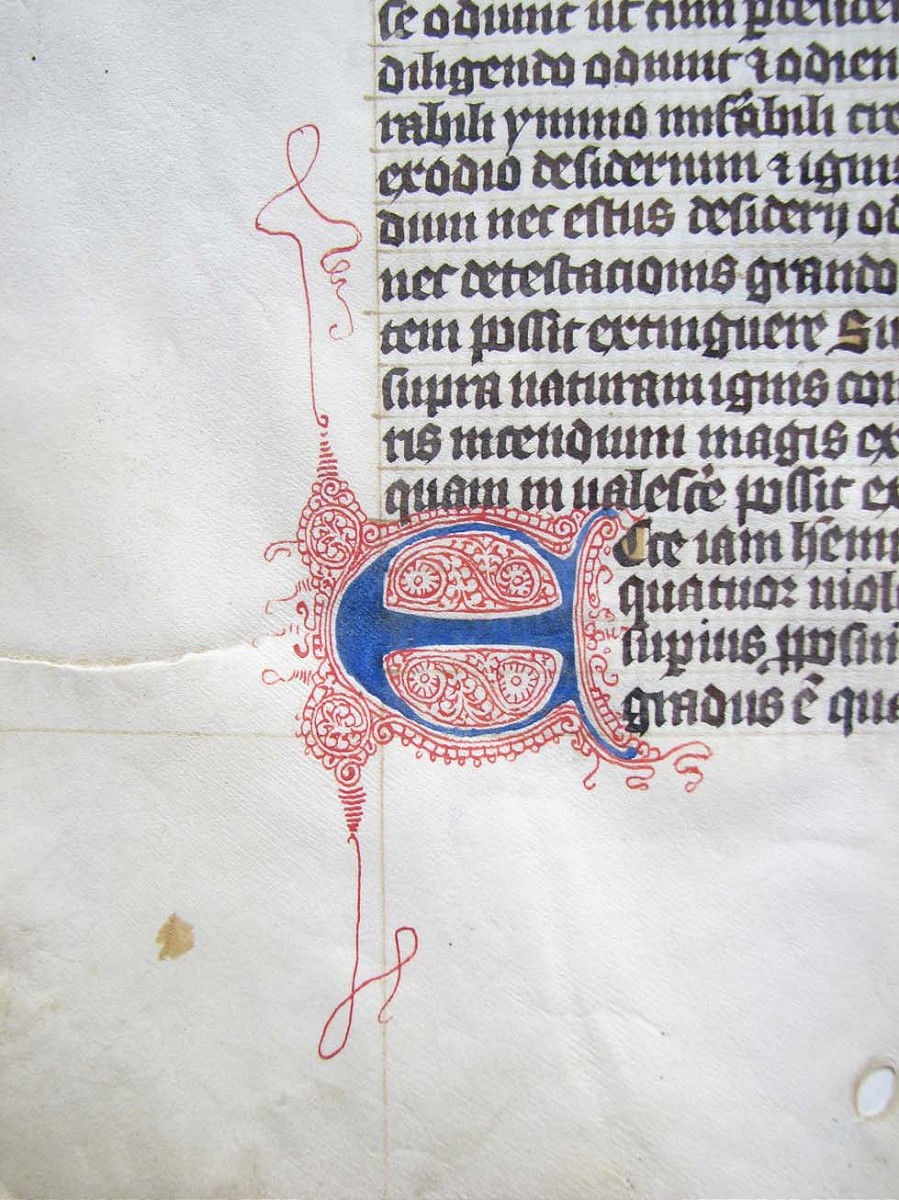 se odiunt ut cum
diligendo odiunt ⁊ odien
rabili ỹmmo miſ̃abili
exodio desiderium ⁊ ignis
dium nec estus desiderij od
nec detestacionis grando
tem possit extinguere Su
supra naturam ignis con
ris incendium magis ex
quam in ualesc̃e possit ex
ECce iam h̃em
quatuor uiol
supius ꝓposui
gradus ẽ que